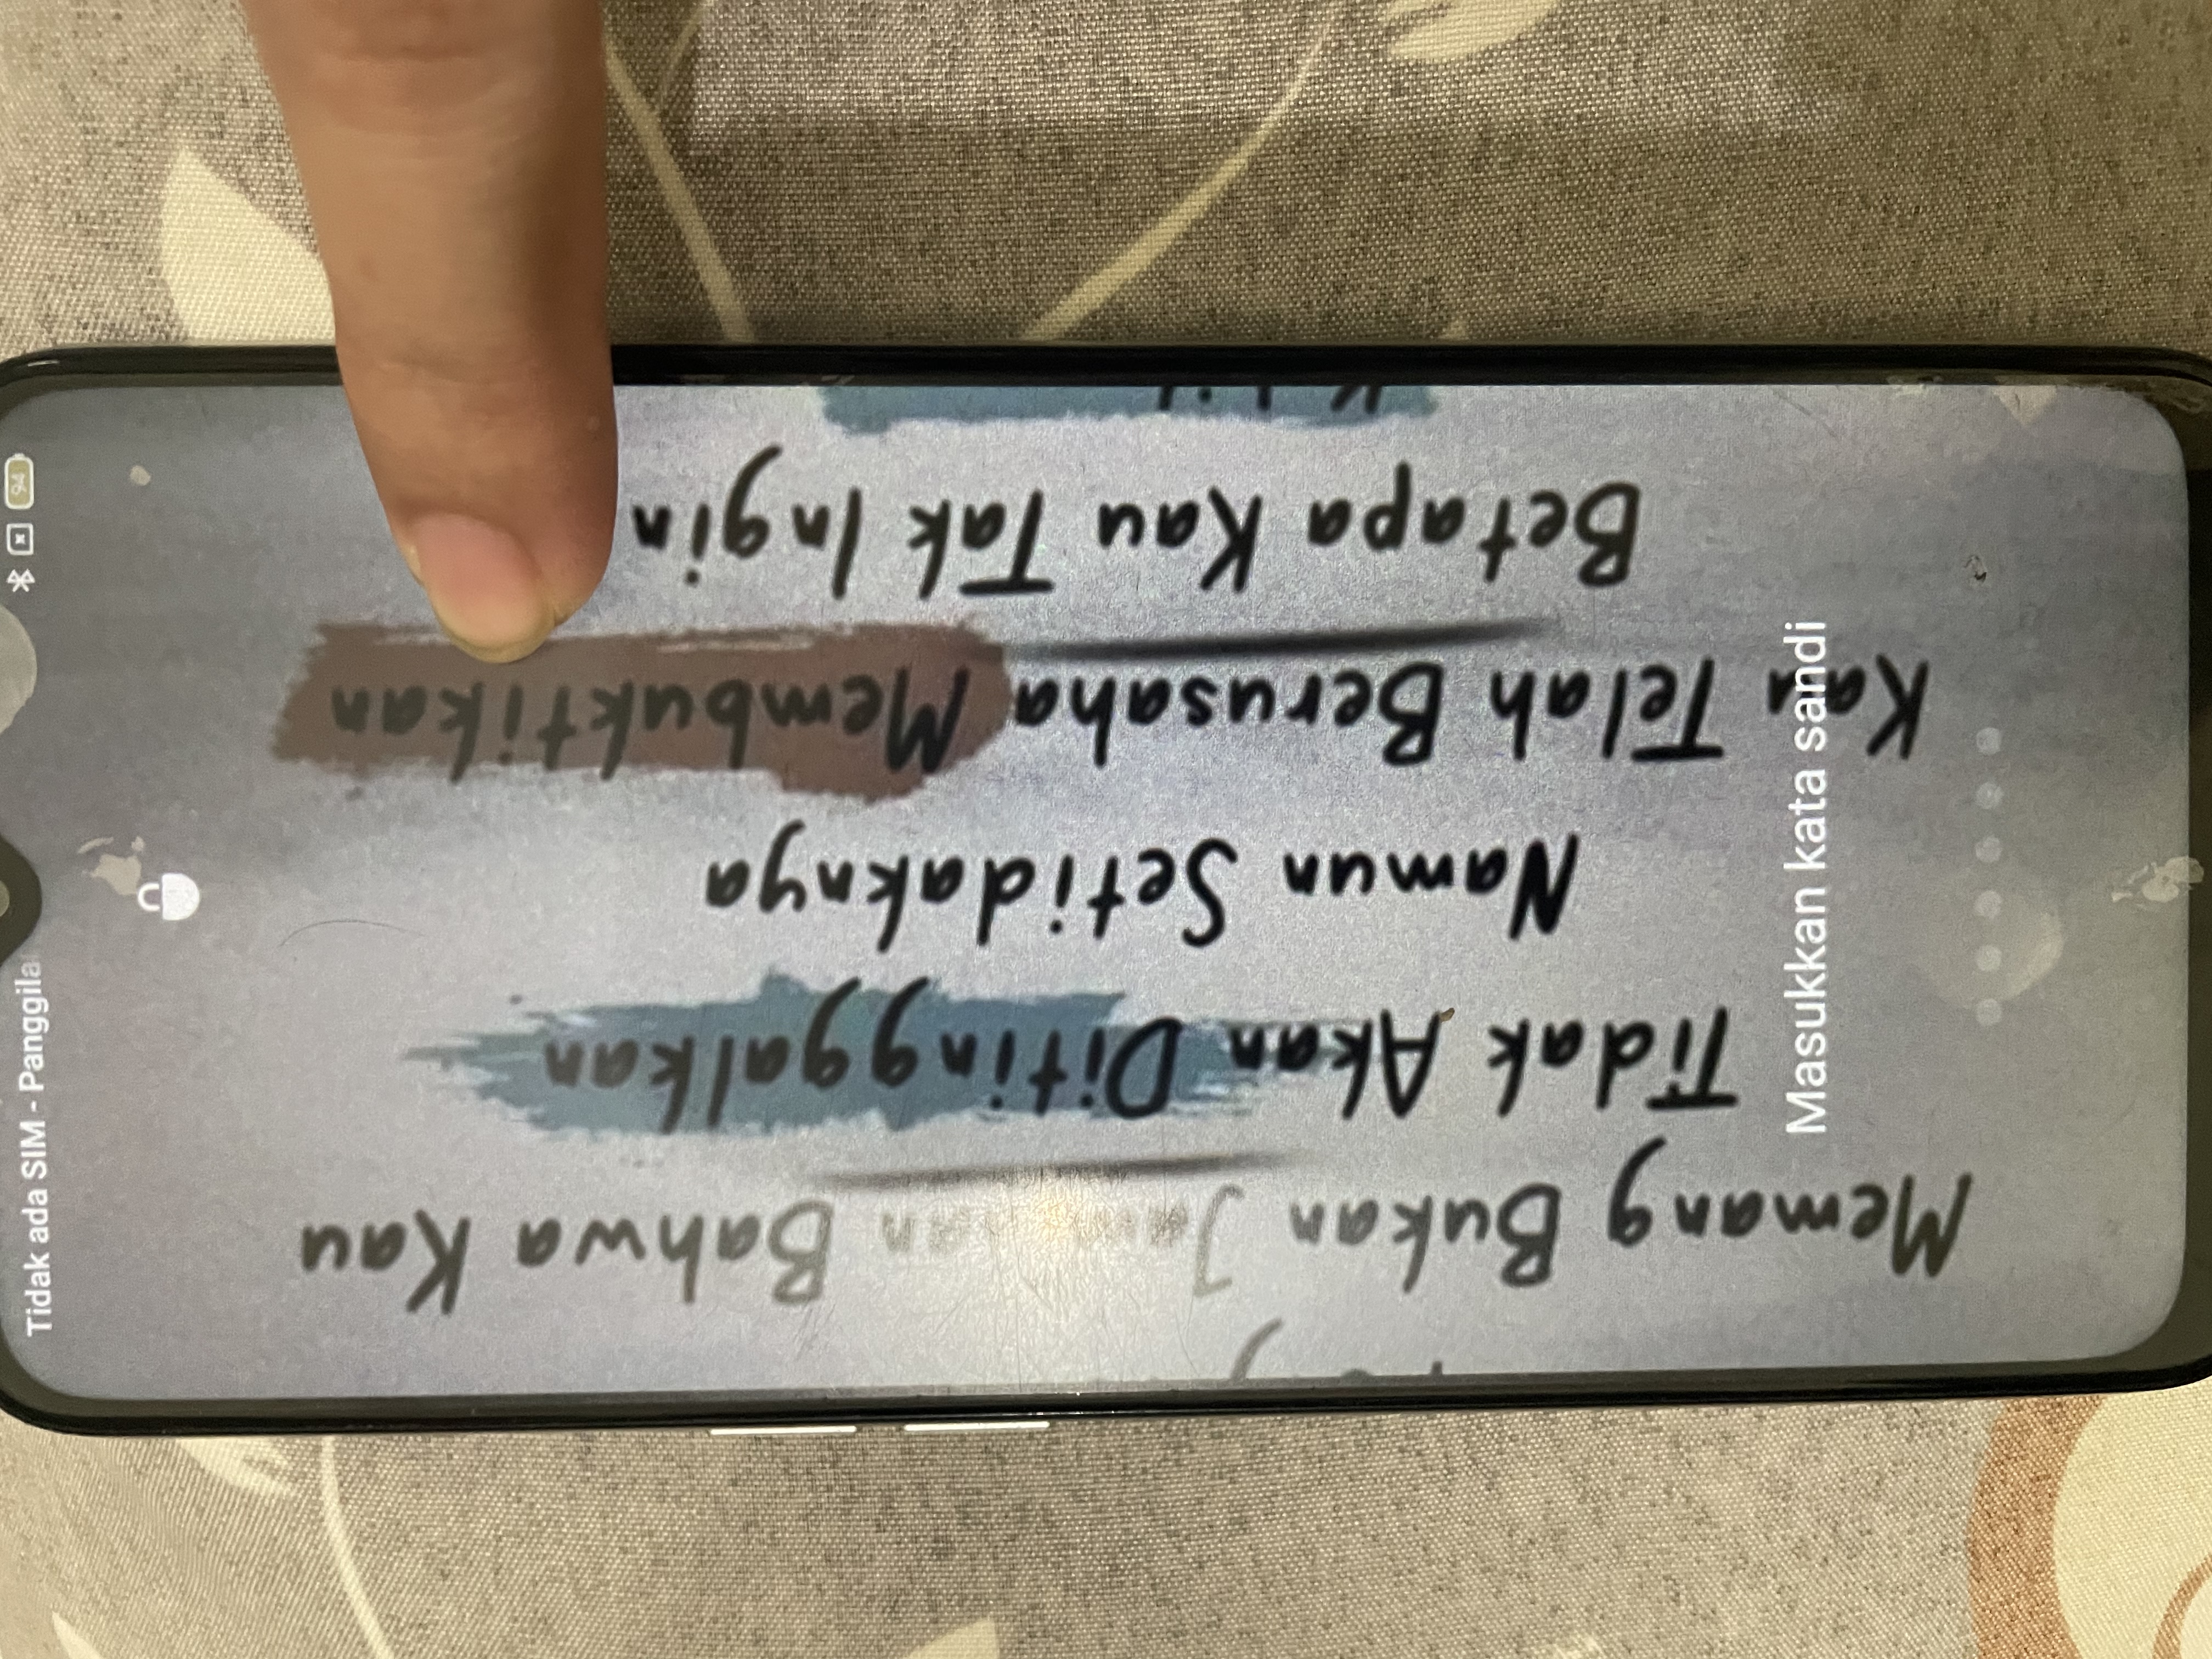 Tidak ada SIM - Panggila
94
Memang Bukan Bahwa Kau
Tidak Akan Ditinggalkan
Namun Setidaknya
Kau Telah Berusaha Membuktikan
Betapa Kau Tak Ingin
Masukkan kata sandi